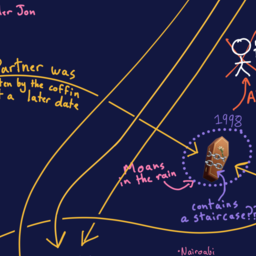 Jon
Partner was
by the coffin
a later date
1998
Moans
in the rain
contains
a staircase??
•Nairoabi